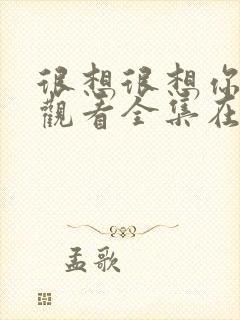 很想很想你
觀看全集在
孟歌